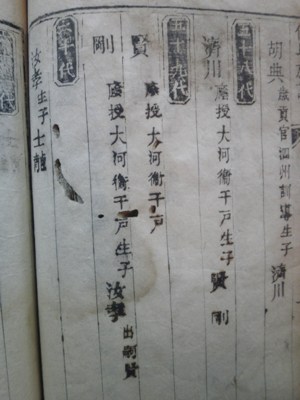 胡典 歲貢官泗州訓導生子 濟川
五十八代
濟川 廕授大河衛千戶生子 賢 剛
五十九代
賢 廕授大河衛千戶
剛 廕授大河衛千戶生子 汝孝 出嗣賢
六十代
汝孝生子士龍